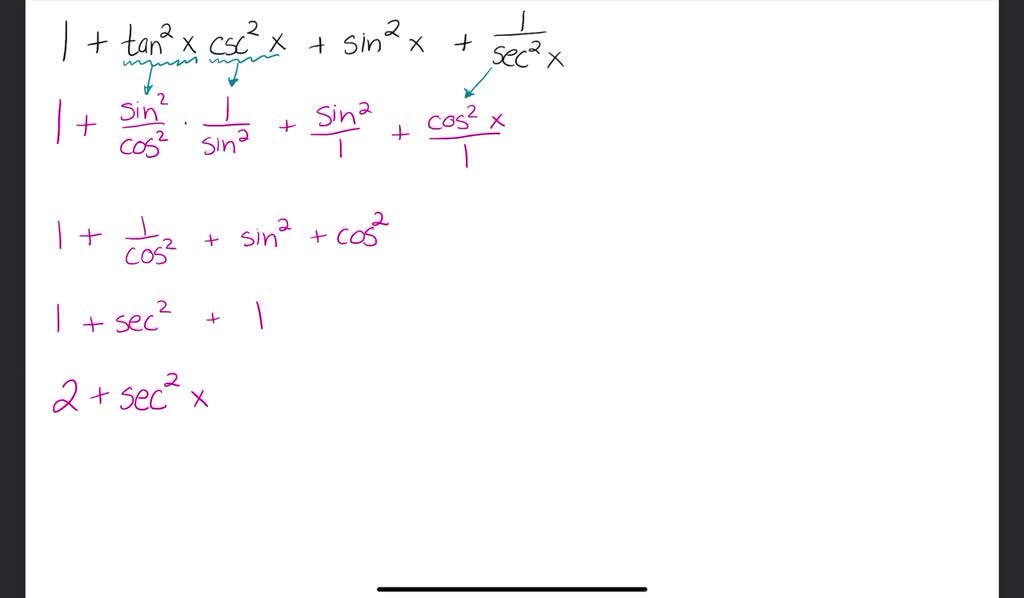 1 + tan² x csc² x + sin² x + 1/sec² x
1 + sin²/cos² · 1/sin² + sin²/1 + cos² x/1
1 + 1/cos² + sin² + cos²
1 + sec² + 1
2 + sec² x